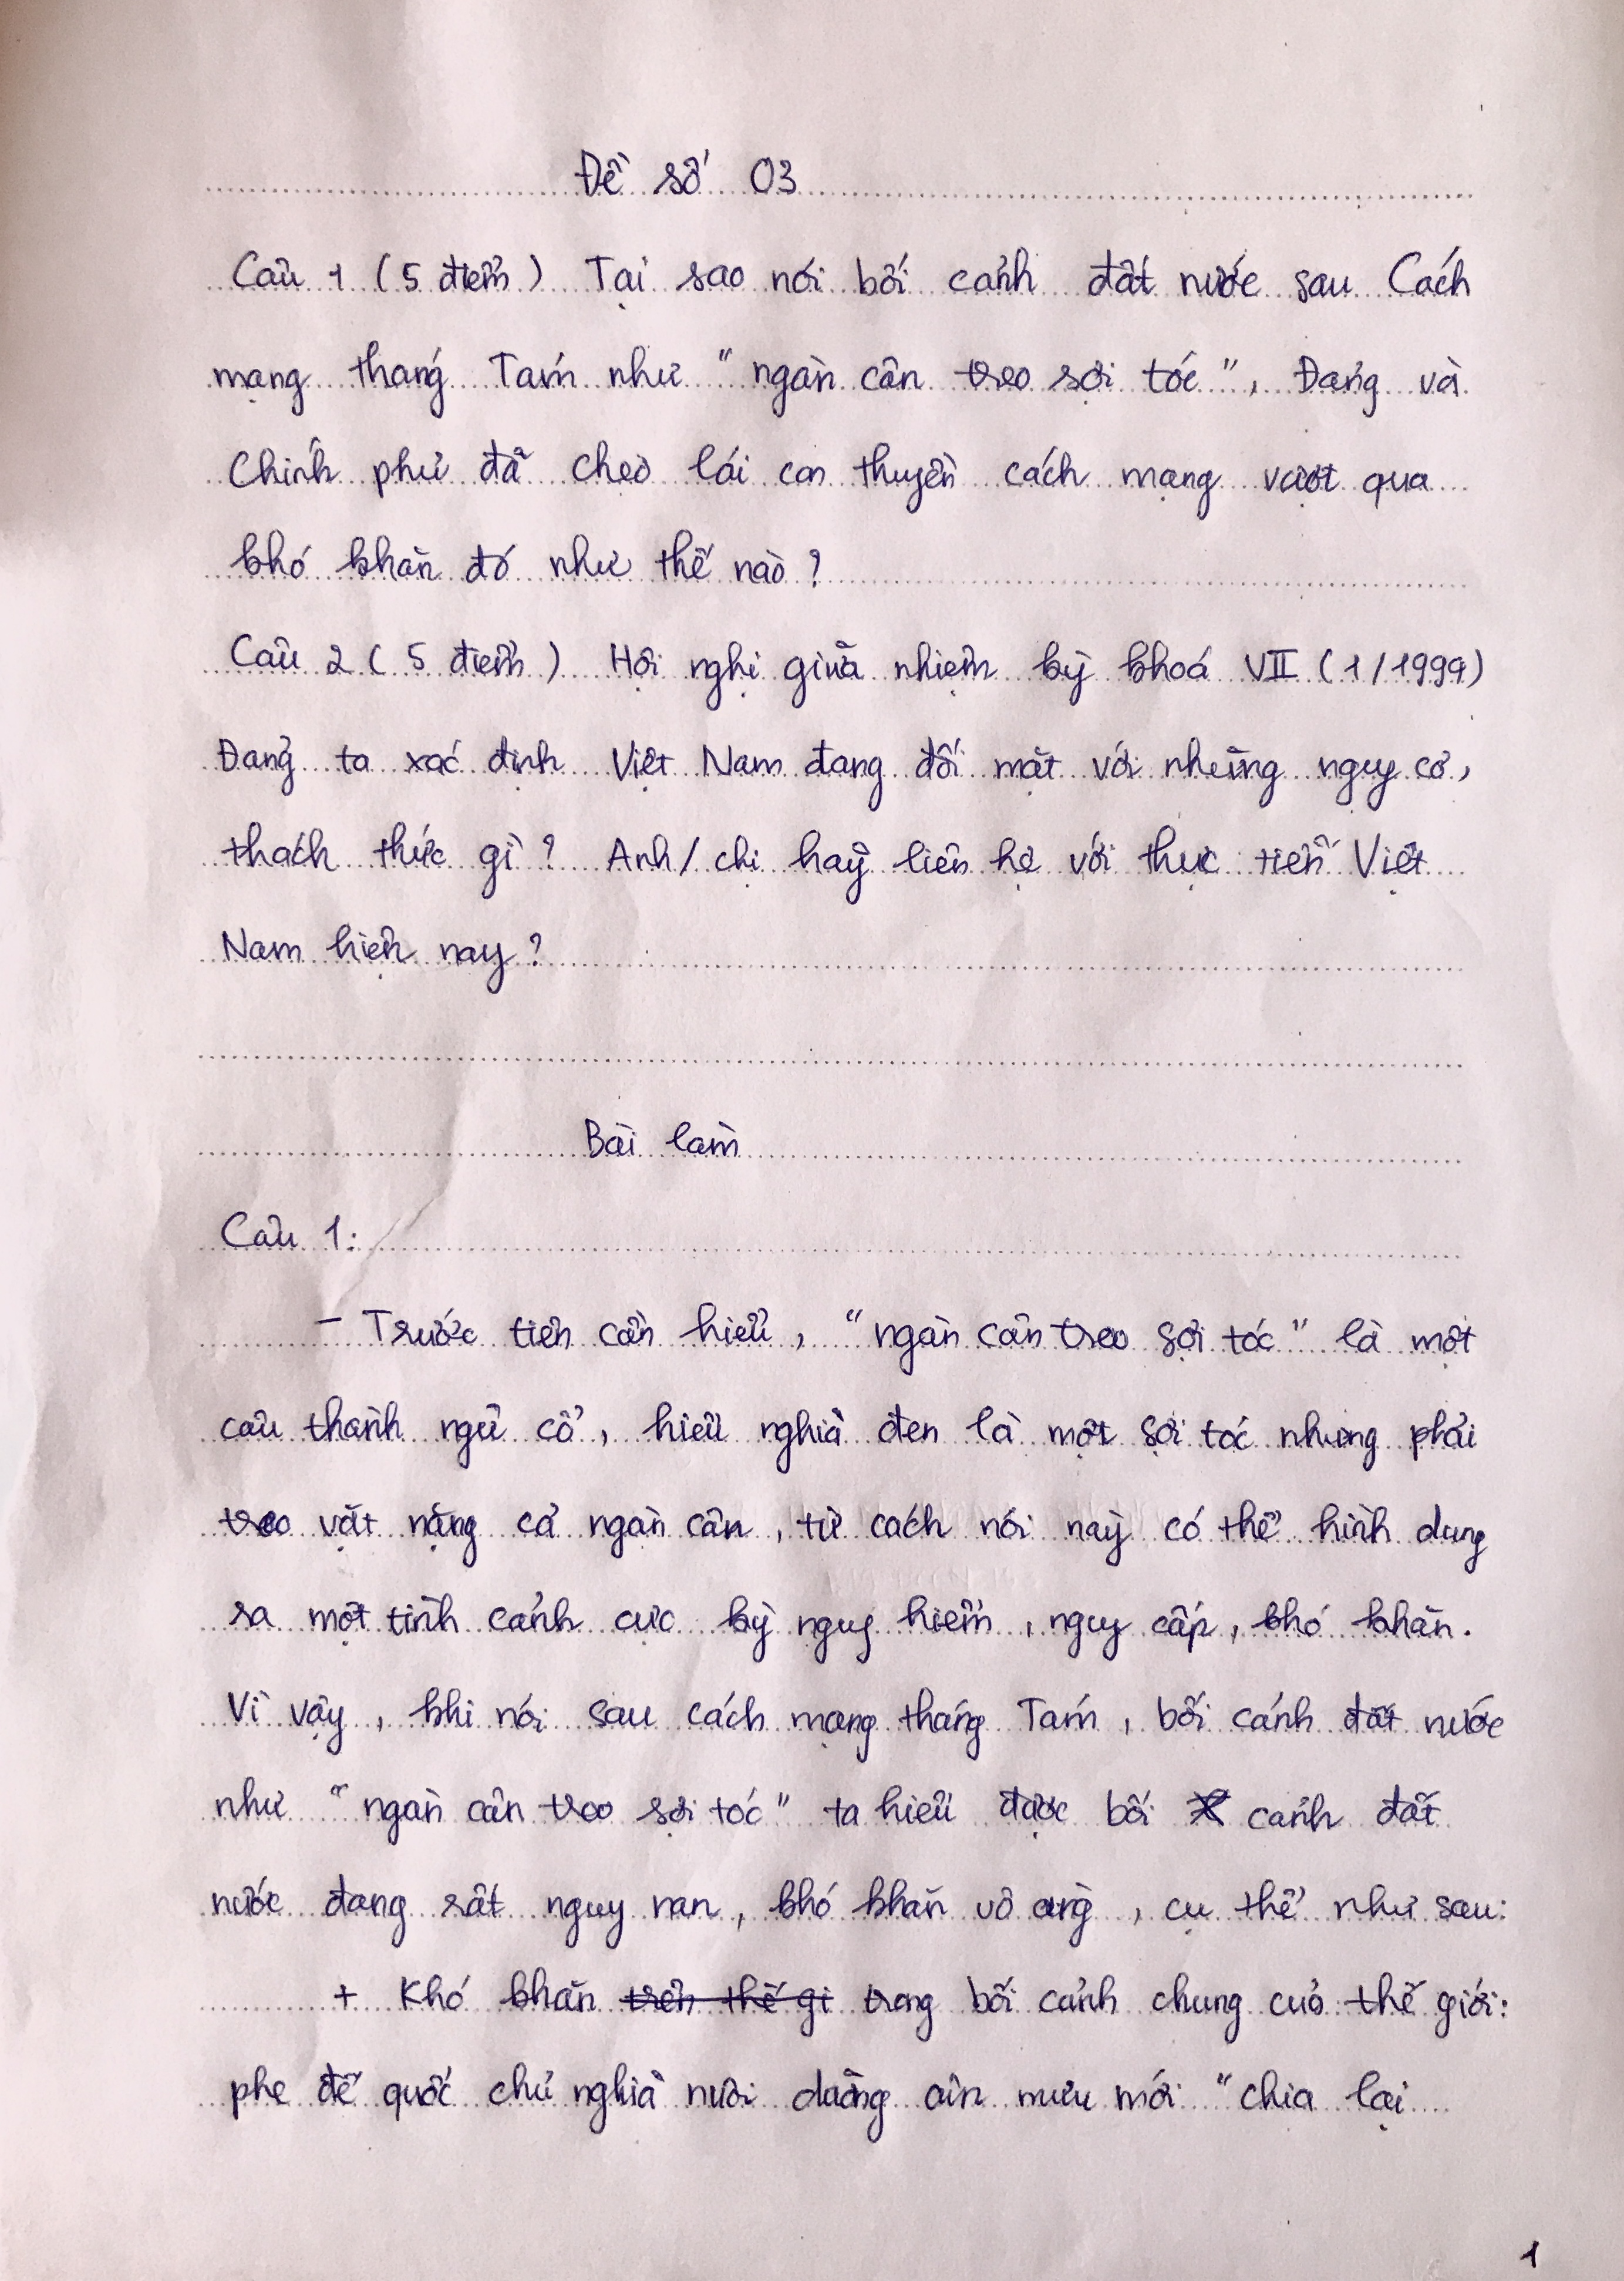 Đề số 03
Câu 1 ( 5 điểm ) Tại sao nói bối cảnh đất nước sau Cách
mạng tháng Tám như " ngàn cân treo sợi tóc ", Đảng và
Chính phủ đã chèo lái con thuyền cách mạng vượt qua
khó khăn đó như thế nào ?
Câu 2 ( 5 điểm ) Hội nghị giữa nhiệm kỳ khoá VII ( 1 / 1999 )
Đảng ta xác định Việt Nam đang đối mặt với những nguy cơ,
thách thức gì ? Anh / chị hãy liên hệ với thực tiễn Việt
Nam hiện nay ?
Bài làm
Câu 1:
- Trước tiên cần hiểu , " ngàn cân treo sợi tóc " là một
câu thành ngữ cổ , hiểu nghĩa đen là một sợi tóc nhưng phải
treo vật nặng cả ngàn cân , từ cách nói này có thể hình dung
ra một tình cảnh cực kỳ nguy hiểm , nguy cấp , khó khăn .
Vì vậy , khi nói sau cách mạng tháng Tám , bối cảnh đất nước
như " ngàn cân treo sợi tóc " ta hiểu được bối cảnh đất
nước đang rất nguy nan , khó khăn vô cùng , cụ thể như sau :
+ Khó khăn trên thế gi trong bối cảnh chung của thế giới :
phe đế quốc chủ nghĩa nuôi dưỡng âm mưu mới " chia lại
1